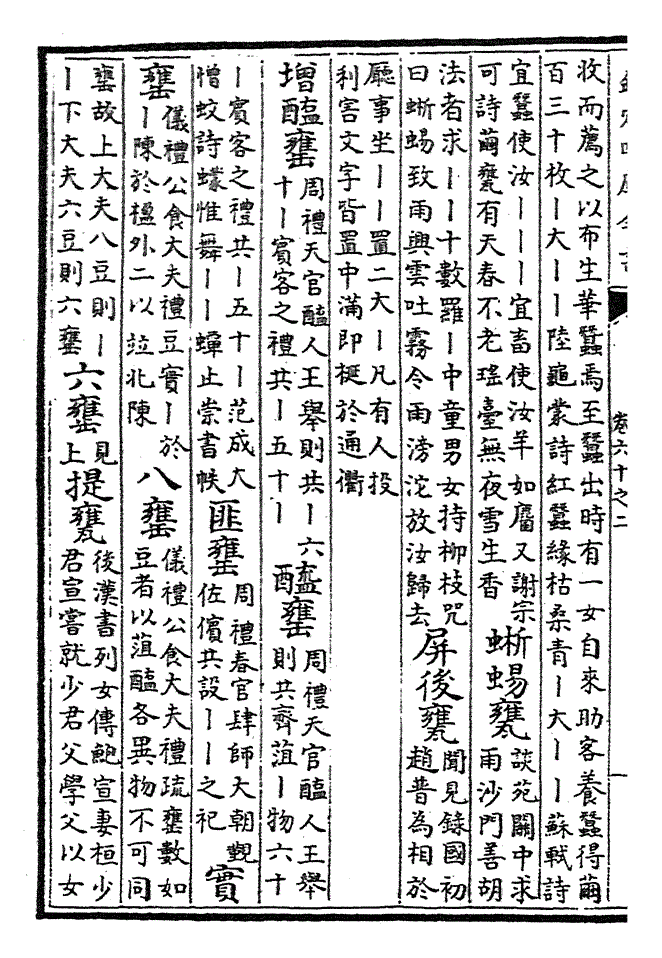 欽定四庫全書 卷六十之二 一
收而薦之以布生華蠶焉至蠶出時有一女自來助客養蠶得繭
百三十枚丨大丨丨陸龜蒙詩紅蠶緣枯桑青丨大丨丨蘇軾詩
宜蠶使汝丨丨丨宜畜使汝羊如麕又謝宗
可詩繭甕有天春不老瑤臺無夜雪生香
蜥蜴甕
談苑闗中求
雨沙門善胡
法者求丨丨十數羅丨中童男女持柳枝咒
曰蜥蜴致雨興雲吐霧令雨滂沱放汝歸去
屏後甕
聞見錄國初
趙普為相於
廳事坐丨丨置二大丨凡有人投
利害文字皆置中滿即梃於通衢
增醢罋
周禮天官醢人王舉則共丨六
十丨賓客之禮共丨五十丨
醯罋
周禮天官醯人王舉
則共齊菹丨物六十
丨賓客之禮共丨五十丨范成大
憎蚊詩蠓惟舞丨丨蟬止崇書帙
匪罋
周禮春官肆師大朝覲
佐儐共設丨丨之祀
實
罋
儀禮公食大夫禮豆實丨於
丨陳於楹外二以竝北陳
八罋
儀禮公食大夫禮疏罋數如
豆者以菹醢各異物不可同
罋故上大夫八豆則丨
丨下大夫六豆則六罋
六罋
見
上
提甕
後漢書列女傳鮑宣妻桓少
君宣嘗就少君父學父以女